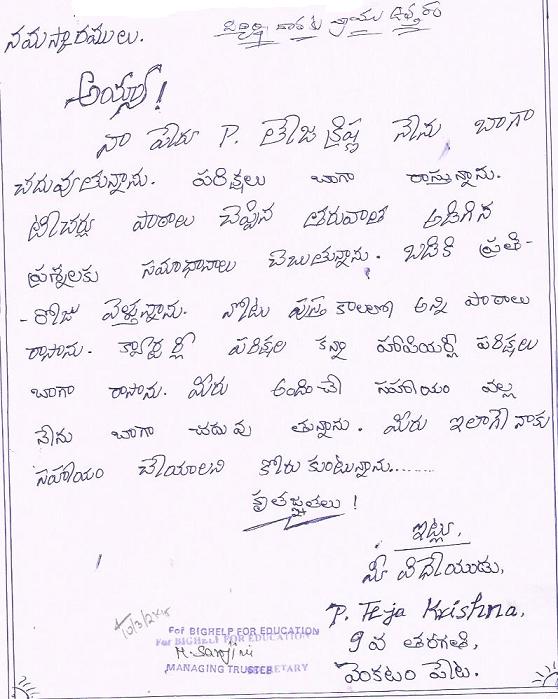 విద్యార్థి దాతకు వ్రాయు ఉత్తరం
నమస్కారములు.
అయ్యా!
నా పేరు P. తేజ క్రిష్ణ నేను బాగా
చదువుతున్నాను. పరిక్షలు బాగా రాస్తున్నాను.
టీచర్లు పాఠాలు చెప్పిన తరువాత అడిగిన
ప్రశ్నలకు సమాధానాలు చెబుతున్నాను. బడికి ప్రతి-
- రోజు వెళ్తున్నాను. నోటు పుస్తకాలలో అన్ని పాఠాలు
రాసాను. క్వార్టర్లీ పరిక్షల కన్నా హాఫియర్లీ పరిక్షలు
బాగా రాసాను. మీరు అందించే సహాయం వల్ల
నేను బాగా చదువు తున్నాను. మీరు ఇలాగే నాకు
సహాయం చేయాలని కోరు కుంటున్నాను........
కృతజ్ఞతలు!
ఇట్లు,
మీ విధేయుడు,
P. Teja Krishna,
9వ తరగతి,
వెంకటం పేట.
For BIGHELP FOR EDUCATION
MANAGING TRUSTEE
SECRETARY